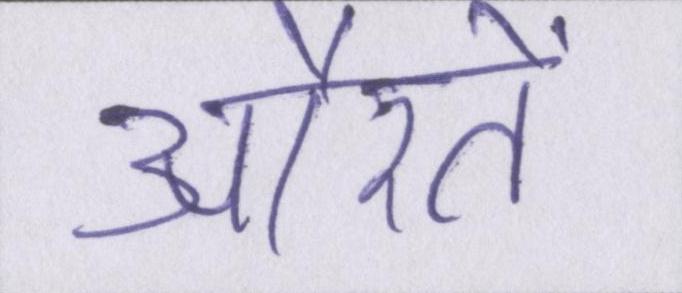 औरतें